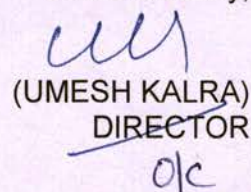 (UMESH KALRA)
DIRECTOR
O/c